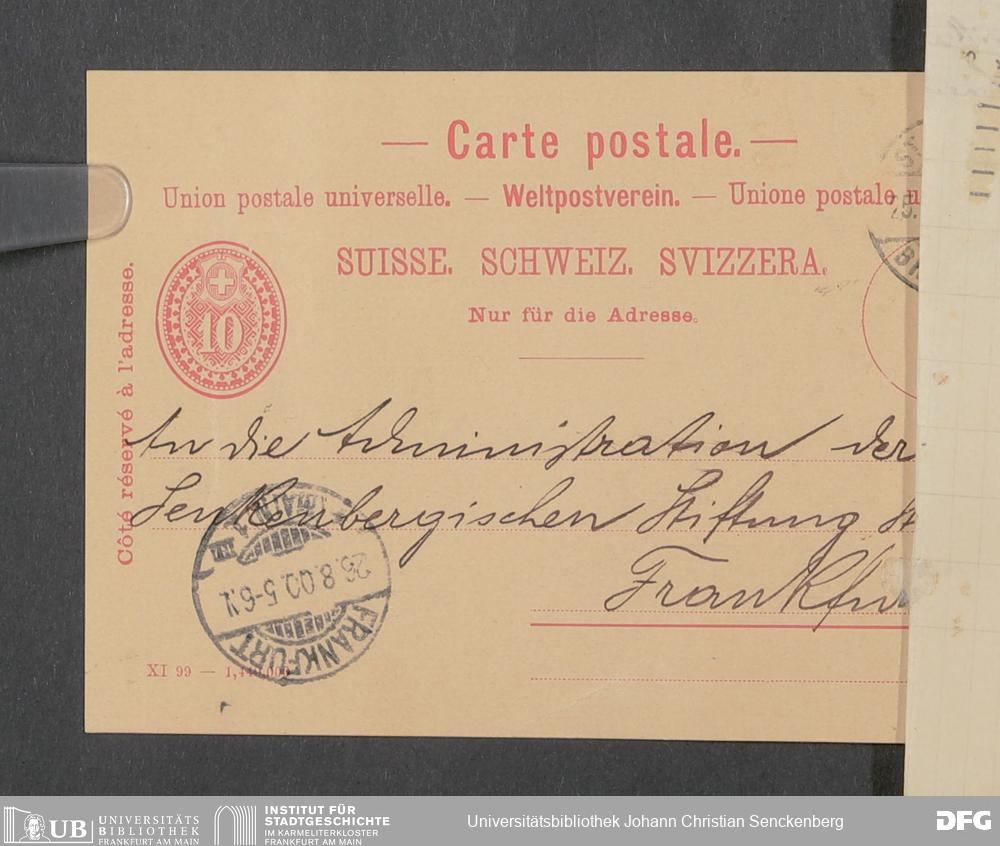 — Carte postale. —
Union postale universelle. — Weltpostverein. — Unione postale u
SUISSE. SCHWEIZ. SVIZZERA.
Nur für die Adresse.
10
Côté réservé à l'adresse.
An die Administration der
Senkenbergischen Stiftung
Frankfur
FRANKFURT
26.8.00. 5-6N.
XI 99 — 1,440,000
UB UNIVERSITÄTS
BIBLIOTHEK
FRANKFURT AM MAIN
INSTITUT FÜR
STADTGESCHICHTE
IM KARMELITERKLOSTER
FRANKFURT AM MAIN
Universitätsbibliothek Johann Christian Senckenberg
DFG